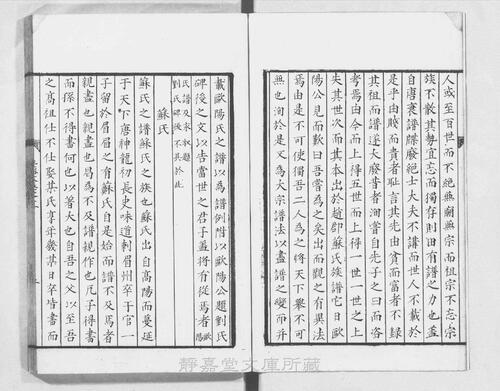 人或至百世而不絕無廟無宗而祖宗不忘宗
族不散其勢宜忘而獨存則由有譜之力也蓋
自唐衰譜牒廢絕士大夫不講而世人不載於
是乎由賤而貴者耻言其先由貧而富者不録
其祖而譜遂大廢昔者洵嘗自先子之曰而咨
考焉由今而上得五世而上得一世一世之上
失其世次而其本出於趙郡蘇氏族譜它日歐
陽公見而歎曰吾嘗為之矣出而觀之有異法
焉由是不可使獨吾二人為之將天下舉不可
無也洵於是又為大宗譜法以盡譜之變而并
載歐陽氏之譜以為譜例附以歐陽公題劉氏
碑後之文以告當世之君子蓋將有從焉者歐陽
氏譜及永叔題
劉氏碑後不具於此
蘇氏
蘇氏之譜蘇氏之族也蘇氏出自高陽而蔓延
于天下唐神龍初長史味道刺眉州卒于官一
子留於眉眉之有蘇氏自是始而譜不及焉者
親盡也親盡也曷為不及譜視作也凡子得書
而孫不得書何也以著代也自吾之父以至吾
之高祖仕不仕娶某氏享年幾某日卒皆書而
靜嘉堂文庫所藏